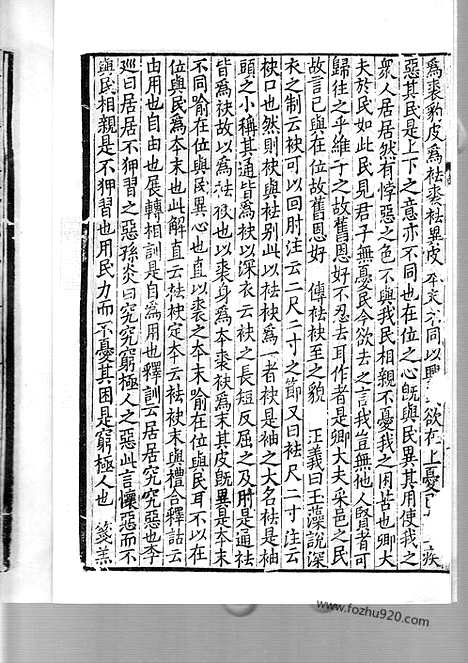 爲裘豹皮爲袪裘袪異皮本末不同以興欲在上憂疾
惡其民是上下之意亦不同也在位之心旣與民異其用使我之
衆人居居然有悖惡之色不與我民相親不憂我之困苦也卿大
夫於民如此民見君子無憂民今欲去之言我豈無他人賢者可
歸往之乎維子之故舊恩好不忍去耳作者是卿大夫采邑之民
故言已與在位故舊恩好 傳袪袂至之貌 正義曰玉藻說深
衣之制云袂可以回肘注云二尺二寸之節又曰袪尺二寸注云
袂口也然則袂與袪別此以袪袂爲一者袂是袖之大名袪是袖
頭之小稱其通皆爲袂以深衣云袂之長短反屈之及肘是通袪
皆爲袂故以爲袪袂也以裘身爲本裘袂爲末其皮旣異是本末
不同喻在位與民異心也直以裘之本末喻在位與民耳不以在
位與民爲本末也此解直云袪袂定本云袪袂末與禮合釋詁云
由用也自由也展轉相訓是自爲用也釋訓云居居究究惡也李
巡曰居居不狎習之惡孫炎曰究究窮極人之惡此言懷惡而不
與民相親是不狎習也用民力而不憂其困是窮極人也 箋羔
www.fozhu920.com